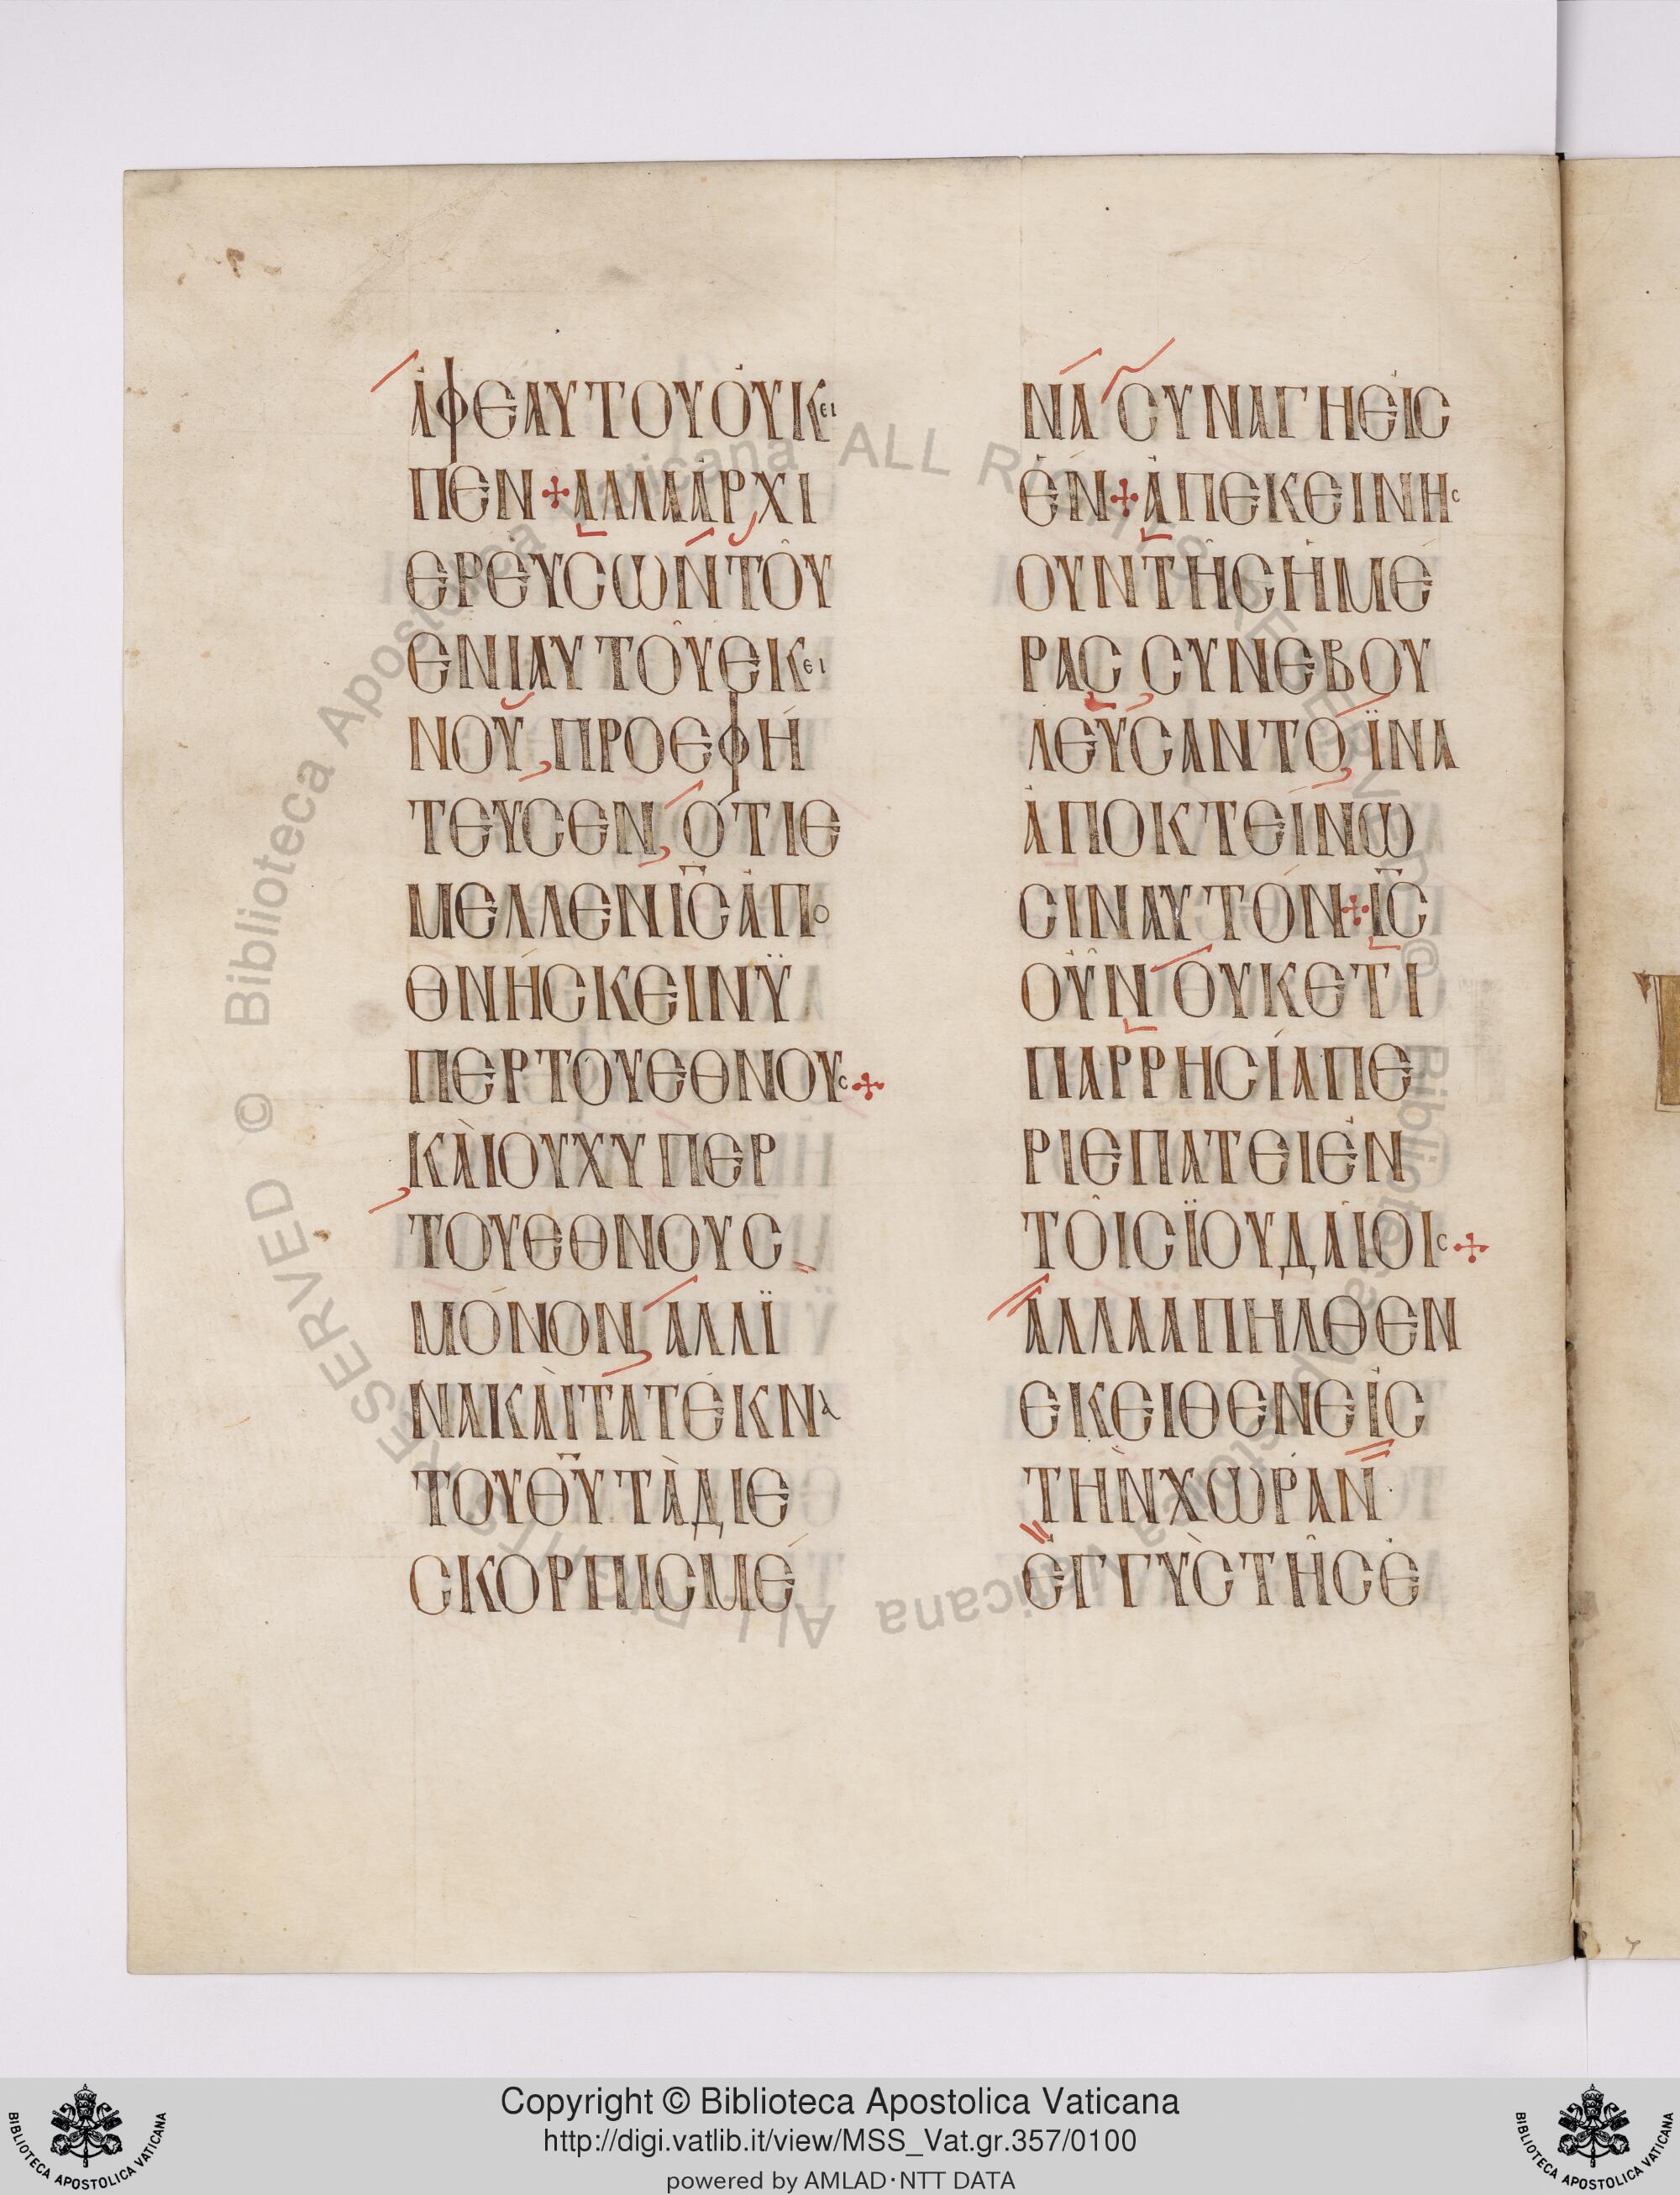 ἀφεαυτουοὐκει
πεν✢αλλααρχι
ερεὺςωντοῦ
ενιαυτοῦεκει
νου,προεφή
τευσεν,ὅτιε
μελλενῙC̄ἀπο
θνήσκεινϋ
περτουεθνους✢
κὰιουχυπερ
τουεθνους
μόνον,αλλϊ
νακὰιτατέκνα
τουΘ̄Ῡτὰδιε
σκορπισμέ
νασυναγηεἰς
ἐν✢ἀπεκεινης
ουντῆςἡμέ
ραςσυνεβου
λεύσαντο,ϊνα
ἀποκτείνω
σιναυτόν✢ῙC̄
οῦνουκετι
παρρησίαπε
ριεπατειἐν
τοῖςϊουδαίοις✢
ἀλλααπηλθεν
εκειθενεἰς
τὴνχωραν
ἐγγὺςτῆςἐ
Biblioteca Apostolica Vaticana ALL RIGHTS RESERVED ©
Copyright © Biblioteca Apostolica Vaticana
http://digi.vatlib.it/view/MSS_Vat.gr.357/0100
powered by AMLAD·NTT DATA
BIBLIOTECA APOSTOLICA VATICANA
BIBLIOTECA APOSTOLICA VATICANA